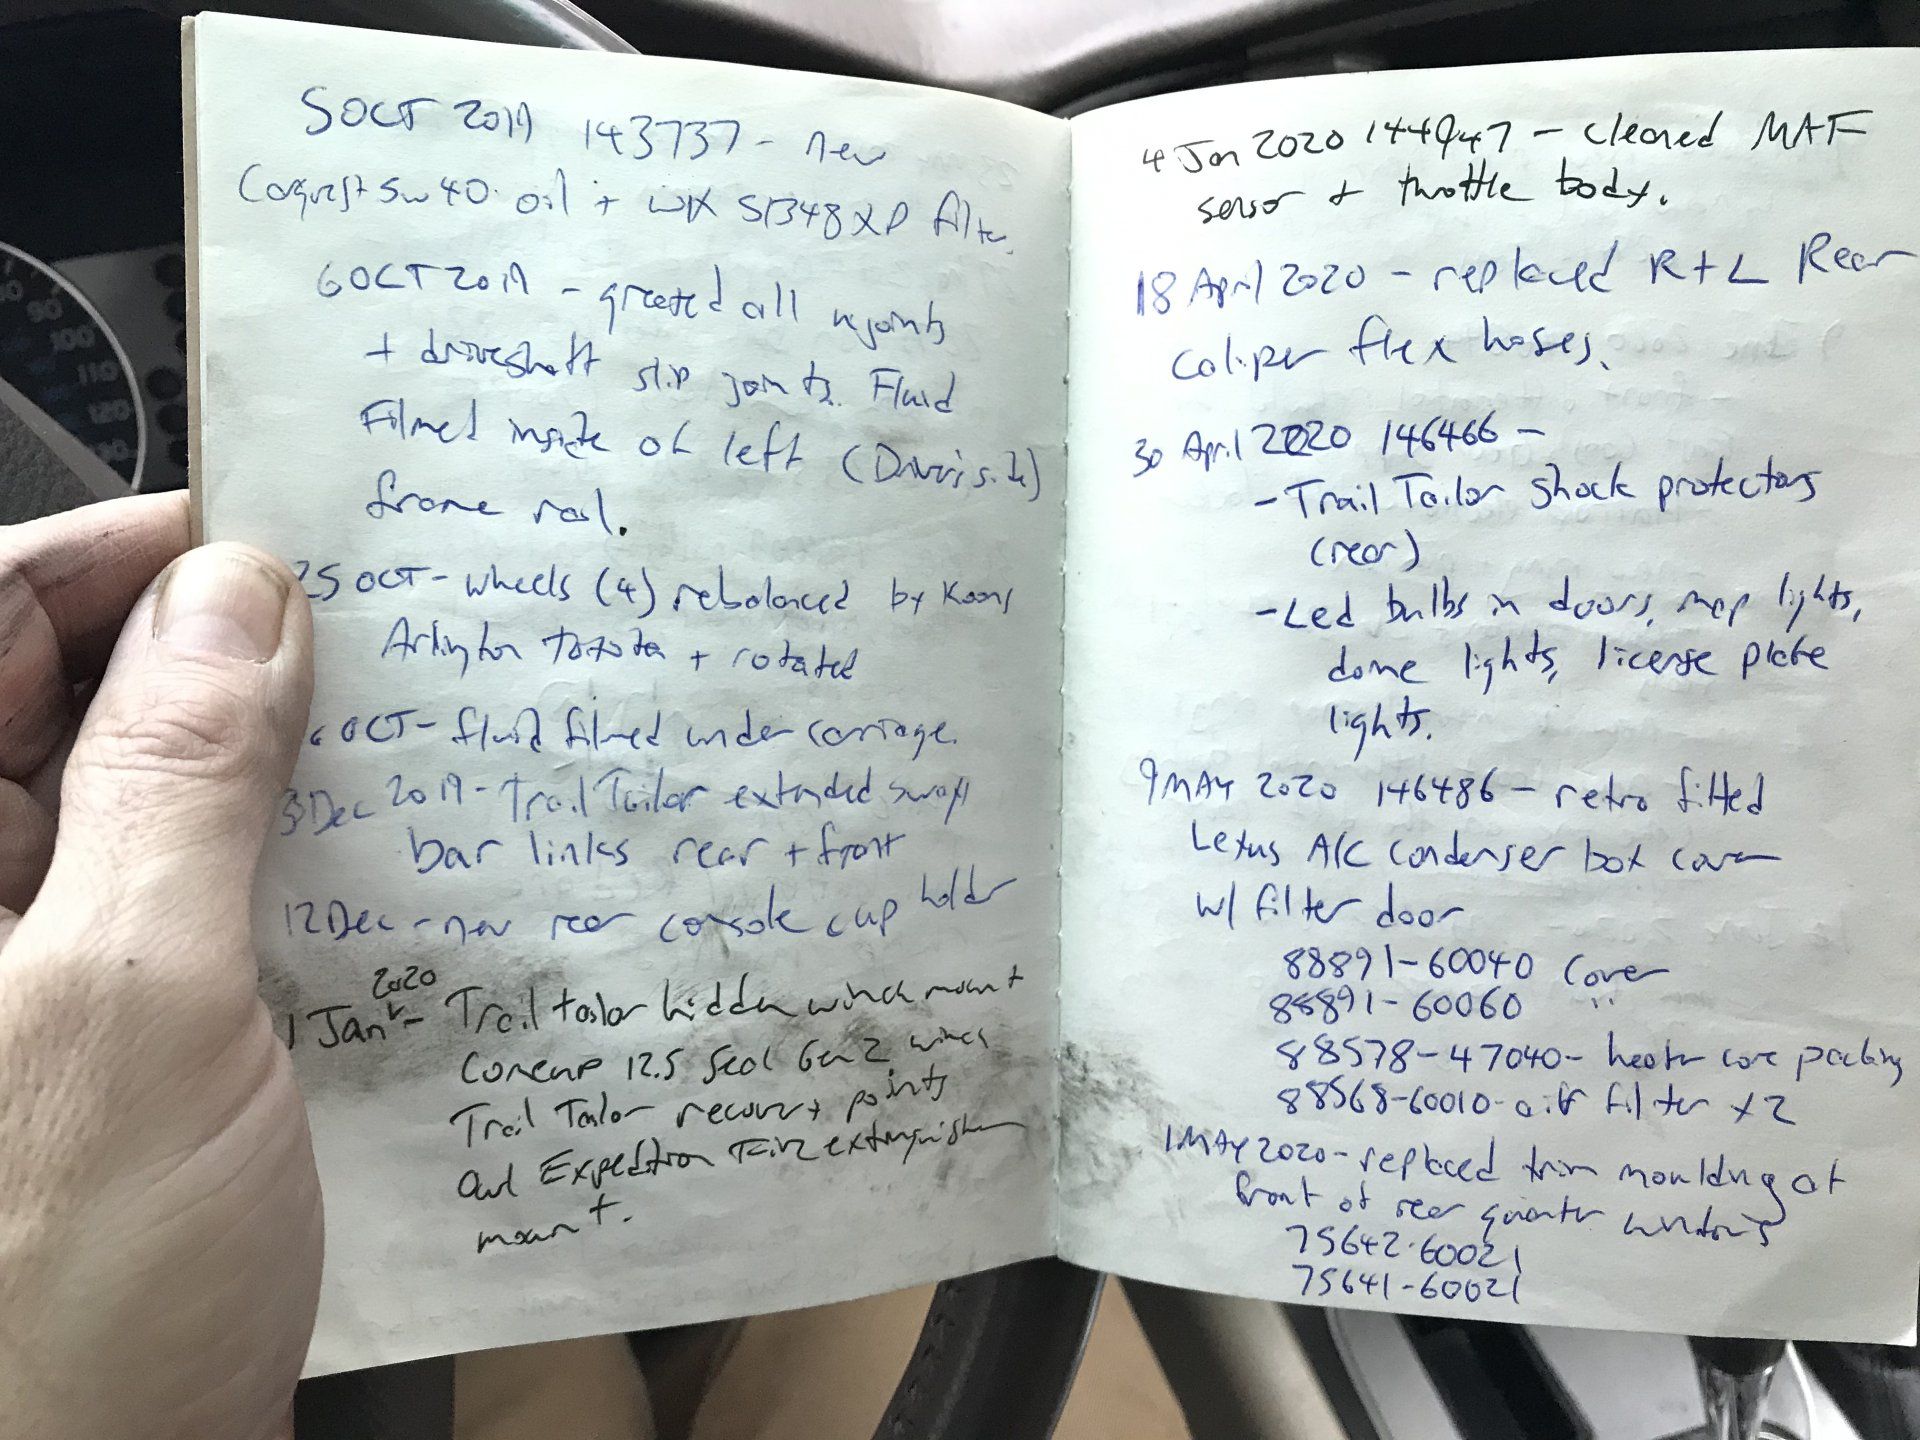 5 OCT 2019 143737 - new
Conquest 5w40 oil + WIX 51348XP filter.
6 OCT 2019 - greased all ujoints
+ driveshaft slip joints. Fluid
Filmed inside of left (Driver's side)
frame rail.
25 OCT - wheels (4) rebalanced by Koons
Arlington Toyota + rotated
OCT - fluid filmed under carriage.
3 Dec 2019 - Trail Tailor extended sway
bar links rear + front
12 Dec - new rear console cup holder
1 Jan 2020 - Trail tailor hidden winch mount
Comeup 12.5 Seal Gen 2 winch
Trail Tailor recovery points
Owl Expedition Fire extinguisher
mount.
4 Jan 2020 144947 - cleaned MAF
sensor + throttle body.
18 April 2020 - replaced R + L Rear
caliper flex hoses.
30 April 2020 146466 -
- Trail Tailor shock protectors
(rear)
- Led bulbs in doors, map lights,
dome lights, license plate
lights.
9 MAY 2020 146486 - retro fitted
Lexus A/C condenser box cover
w/ filter door
88891-60040 cover
88891-60060 "
88578-47040 - heater core packing
88568-60010 - air filter x 2
1 MAY 2020 - replaced trim moulding at
front of rear quarter windows
75642-60021
75641-60021